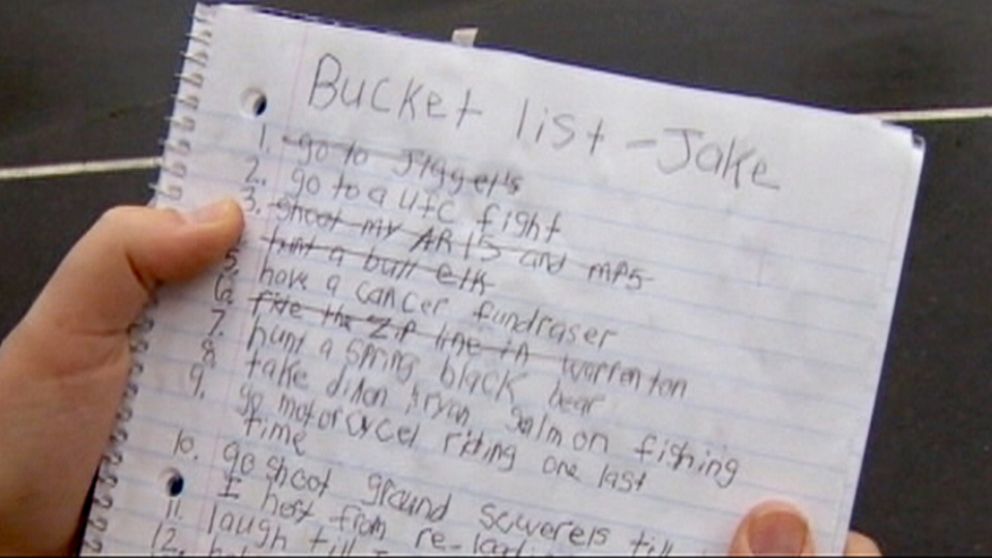 Bucket list - Jake
1. go to Jiggel's
2. go to a ufc fight
3. shoot my AR 15 and MP5
hunt a bull elk
5. have a cancer fundraser
6. five the zip line in warrenton
7. hunt a spring black bear
8. take dillon bryan salmon fishing
9. go motorcycel riding one last
time
10. go shoot ground sqwerels till
I hert from re-loading
11. laugh till I
12.